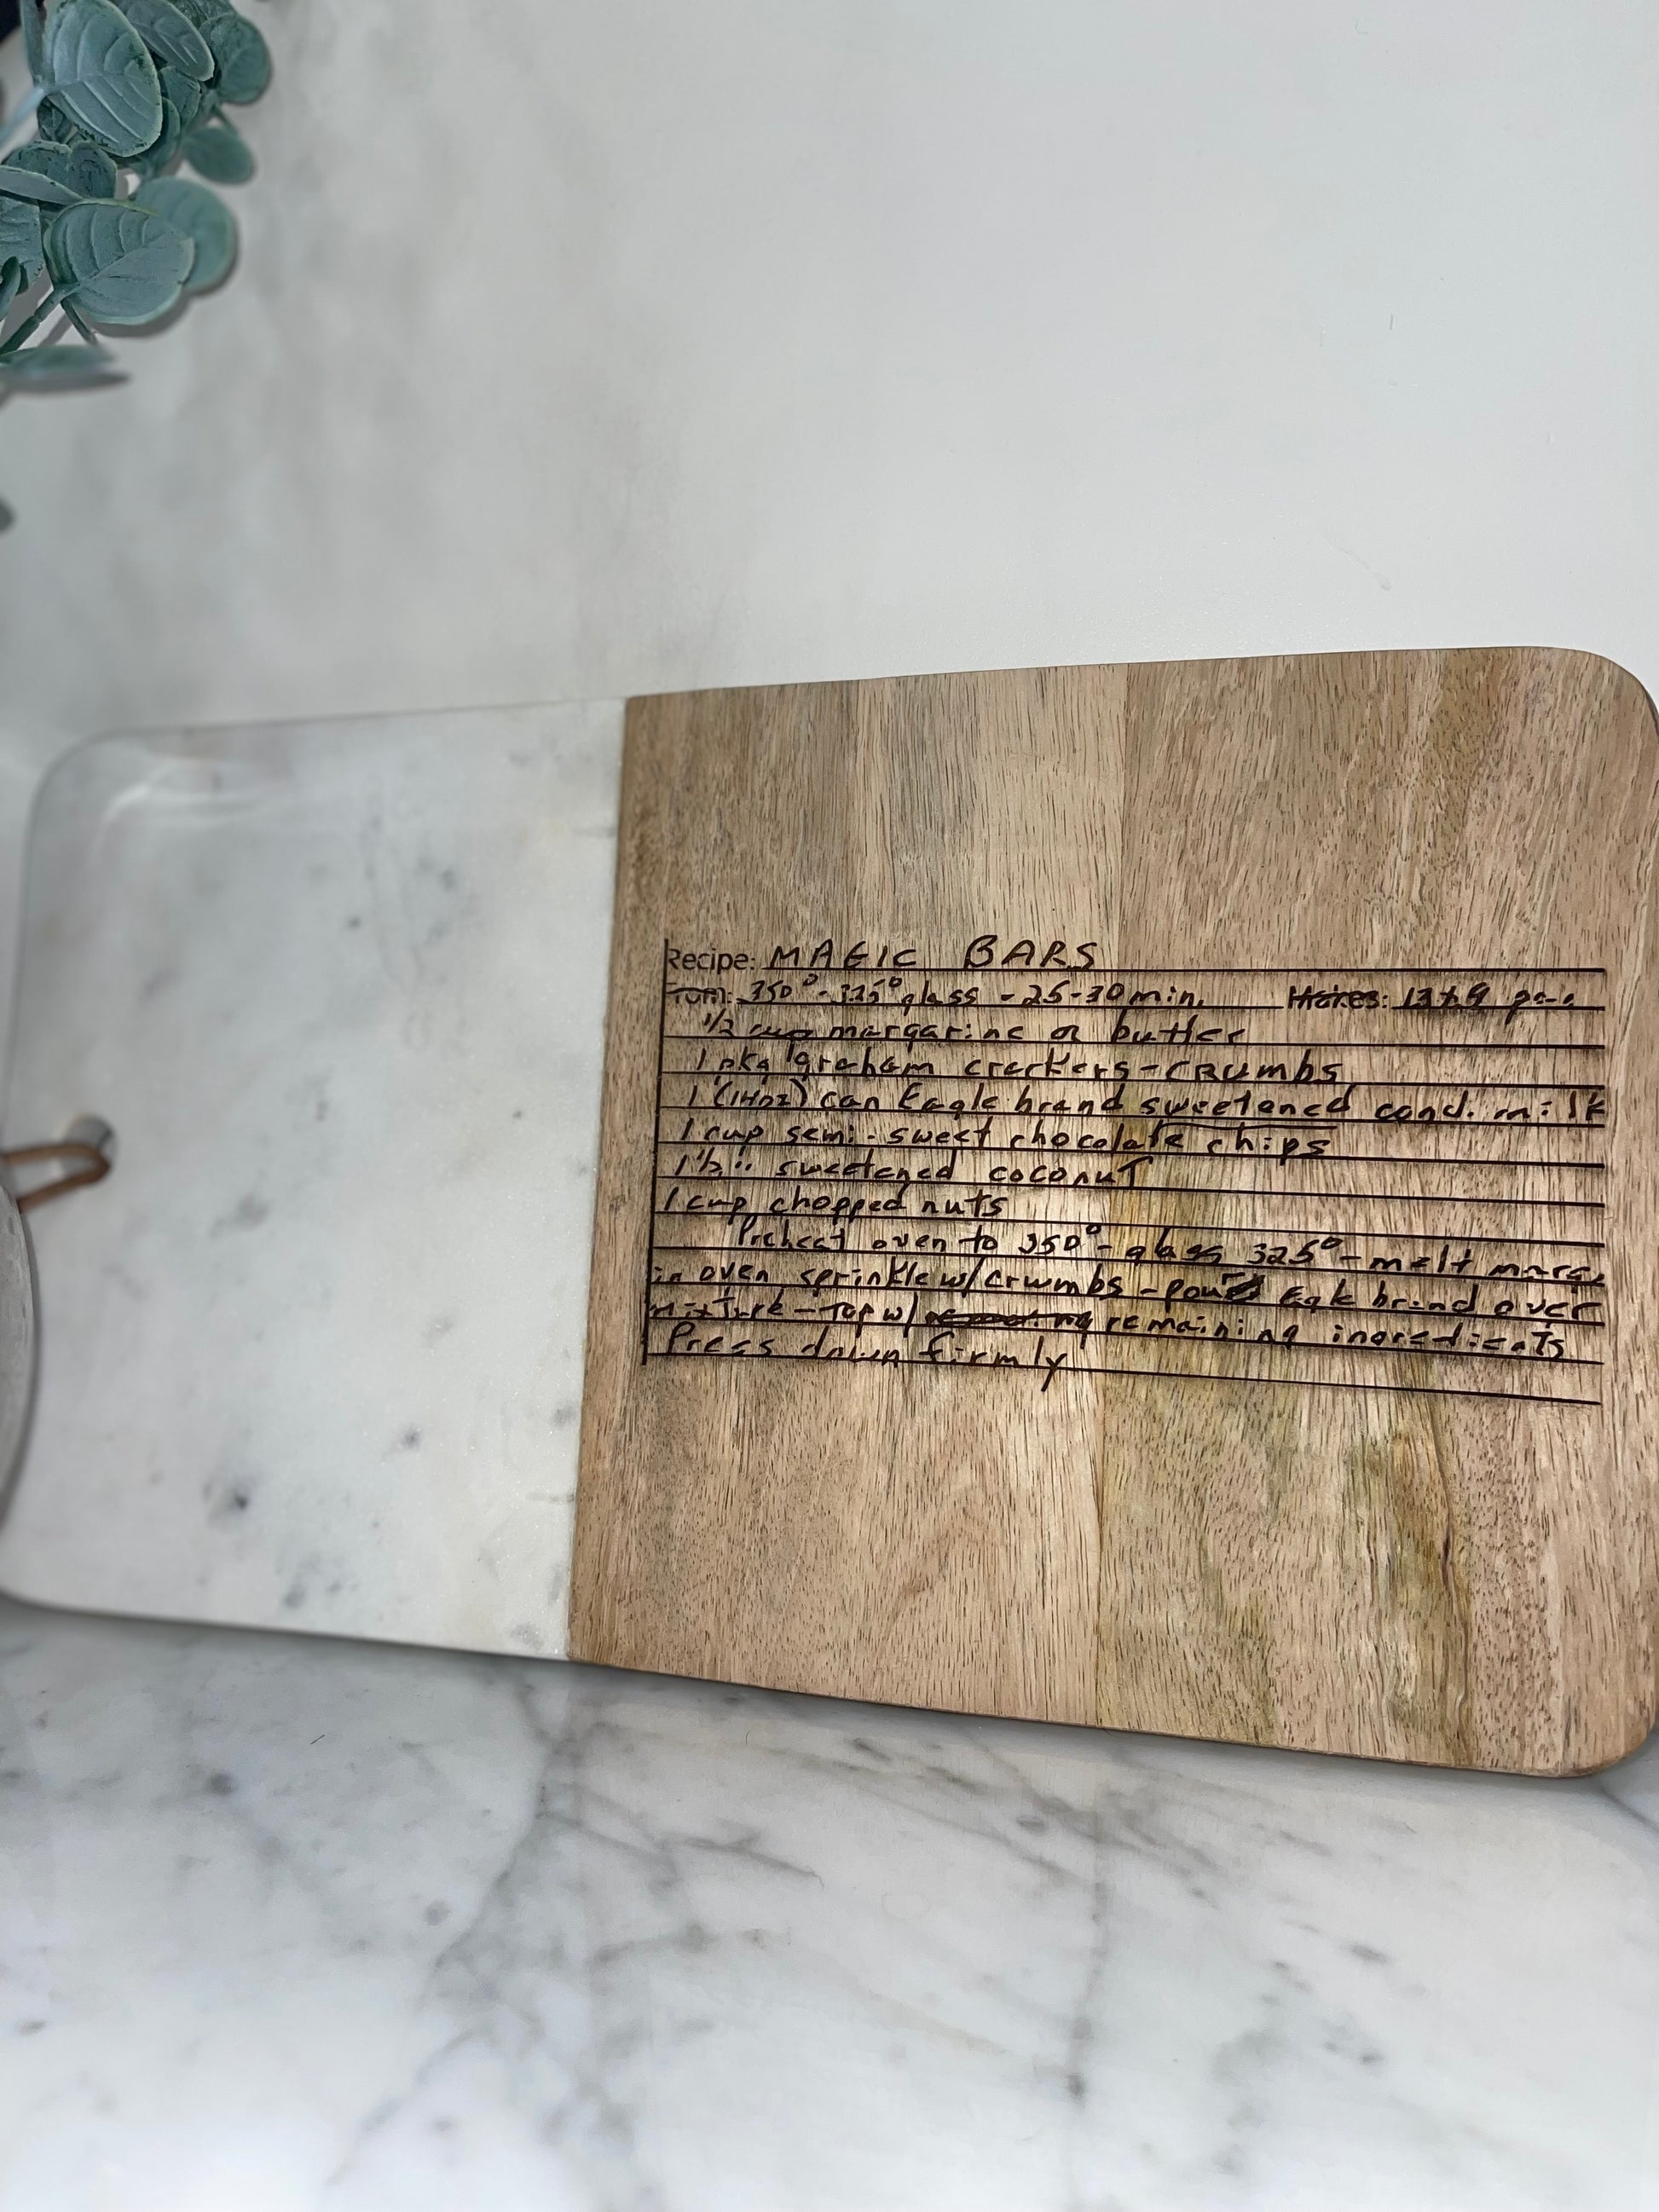 Recipe: MAGIC BARS
From: 350° - 325° glass - 25-30 min. Makes: 13x9 pan
1/2 cup margarine or butter
1 pkg graham crackers - CRumbs
1 (14oz) can Eagle brand sweetened cond. milk
1 cup semi-sweet chocolate chips
1 1/3 " sweetened coconuT
1 cup chopped nuts
Preheat oven to 350° - glass 325° - melt marg.
in oven sprinkle w/crumbs - pour Eagle brand over
mixTure - Top w/ remaining ingredienTs
Press down firmly